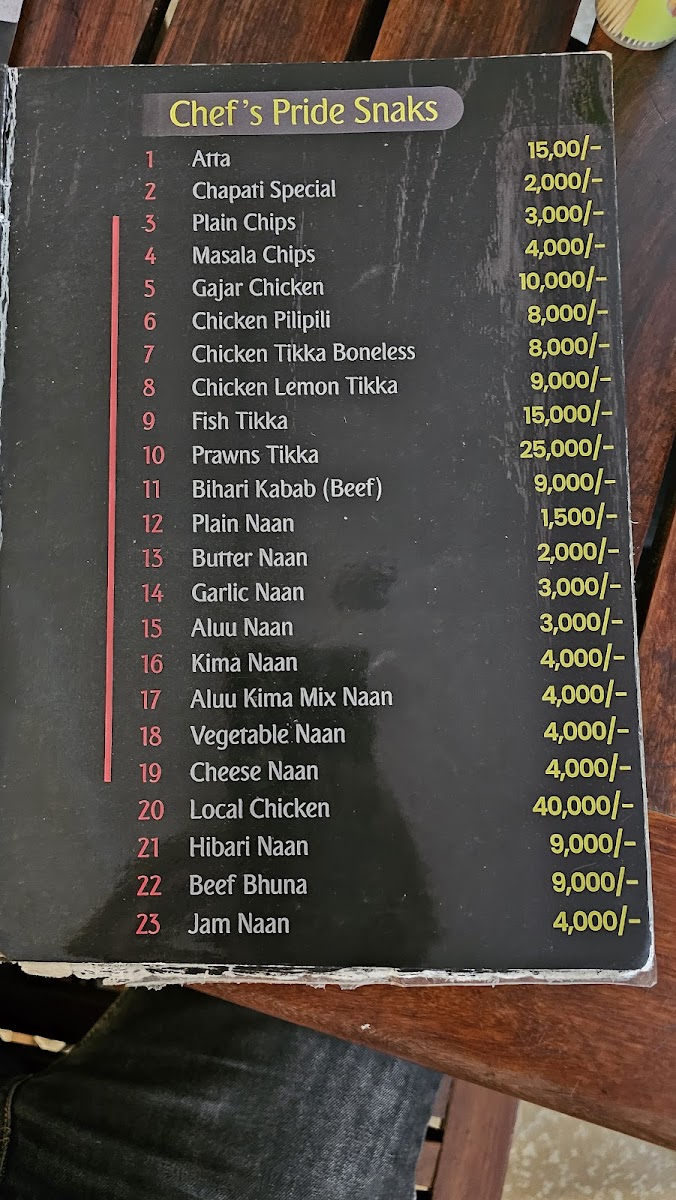 Chef's Pride Snaks
1 Atta 15,00/-
2 Chapati Special 2,000/-
3 Plain Chips 3,000/-
4 Masala Chips 4,000/-
5 Gajar Chicken 10,000/-
6 Chicken Pilipili 8,000/-
7 Chicken Tikka Boneless 8,000/-
8 Chicken Lemon Tikka 9,000/-
9 Fish Tikka 15,000/-
10 Prawns Tikka 25,000/-
11 Bihari Kabab (Beef) 9,000/-
12 Plain Naan 1,500/-
13 Butter Naan 2,000/-
14 Garlic Naan 3,000/-
15 Aluu Naan 3,000/-
16 Kima Naan 4,000/-
17 Aluu Kima Mix Naan 4,000/-
18 Vegetable Naan 4,000/-
19 Cheese Naan 4,000/-
20 Local Chicken 40,000/-
21 Hibari Naan 9,000/-
22 Beef Bhuna 9,000/-
23 Jam Naan 4,000/-